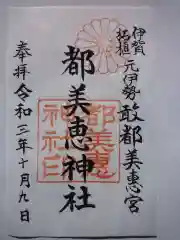 伊賀
柘植
元伊勢敢都美恵宮
都美恵神社
都美恵
神社印
奉拝令和三年十月九日